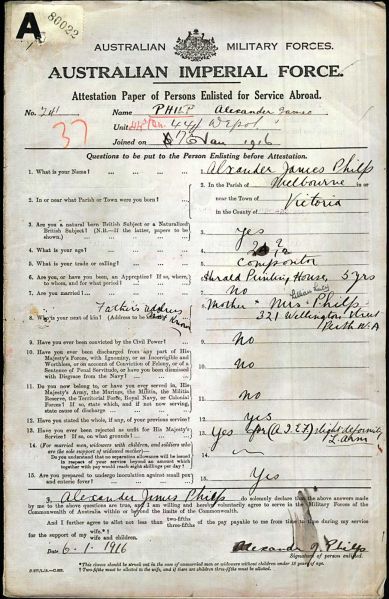 A
80022
AUSTRALIAN MILITARY FORCES.
AUSTRALIAN IMPERIAL FORCE.
Attestation Paper of Persons Enlisted for Service Abroad.
No. 741 Name PHILP Alexander James
37 Unit 44th Depot
Joined on Jan 1916
Questions to be put to the Person Enlisting before Attestation.
1. What is your Name? 1. Alexander James Philp
2. In or near what Parish or Town were you born? 2. In the Parish of Melbourne in or
near the Town of Victoria
in the County of
3. Are you a natural born British Subject or a Naturalized
British Subject? (N.B.—If the latter, papers to be
shown.) 3. Yes
4. What is your age? 4.
5. What is your trade or calling? 5. Compositor
6. Are you, or have you been, an Apprentice? If so, where,
to whom, and for what period? 6. Herald Printing House, 5 yrs
7. Are you married? 7. No
Father's address not known
8. Who is your next of kin? (Address to be stated) 8. Mother Mrs Philp
321 Wellington Street
Perth W.A
9. Have you ever been convicted by the Civil Power? 9. No
10. Have you ever been discharged from any part of His
Majesty's Forces, with Ignominy, or as Incorrigible and
Worthless, or on account of Conviction of Felony, or of a
Sentence of Penal Servitude, or have you been dismissed
with Disgrace from the Navy? 10. No
11. Do you now belong to, or have you ever served in, His
Majesty's Army, the Marines, the Militia, the Militia
Reserve, the Territorial Force, Royal Navy, or Colonial
Forces? If so, state which, and if not now serving,
state cause of discharge 11. No
12. Have you stated the whole, if any, of your previous service? 12. yes
13. Have you ever been rejected as unfit for His Majesty's
Service? If so, on what grounds? 13. Yes for (A.I.F) slight deformity
L arm
14. (For married men, widowers with children, and soldiers who
are the sole support of widowed mother)—
Do you understand that no separation allowance will be issued
in respect of your service beyond an amount which
together with pay would reach eight shillings per day? 14.
15. Are you prepared to undergo inoculation against small pox
and enteric fever? 15. Yes
I, Alexander James Philp do solemnly declare that the above answers made
by me to the above questions are true, and I am willing and hereby voluntarily agree to serve in the Military Forces of the
Commonwealth of Australia within or beyond the limits of the Commonwealth.
And I further agree to allot not less than two-fifths three-fifths of the pay payable to me from time to time during my service
for the support of my wife wife and children.
Date 6.1.1916 Alexander J. Philp
Signature of person enlisted.
*This clause should be struck out in the case of unmarried men or widowers without children under 18 years of age.
Two-fifths must be allotted to the wife, and if there are children three-fifths must be allotted.